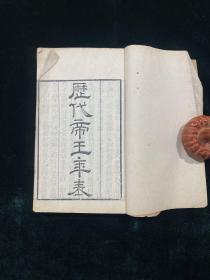 歷代帝王年表